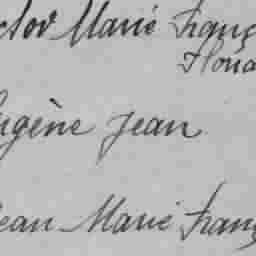 ctor Marie Franç
Eugène Jean
Jean Marie Franç